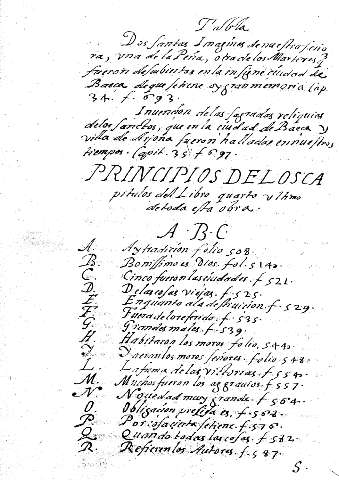 Tabla
Dos santas Imagines de nuestra seño
ra, vna de la Peña, otra de los Martires,
fueron descubiertas en la insigne ciudad de
Baeça de que se tiene gran memoria. Cap.
34. f. 693.
Inuencion de las sagradas reliquias
de los sanctos, que en la ciudad de Baeça y
villa de Arjona fueron halladas en nuestros
tiempos. Capit. 35. f. 697.
PRINCIPIOS DE LOS CA
pitulos del Libro quarto y vltimo
de toda esta obra.
A. B. C
A. Ay tradicion folio 508.
B. Bonissimo es Dios. fol. 514.
C. Cinco fueron las ciudades. f. 521.
D. De la cosas viejas. f. 525.
E. En quanto a la destruicion. f. 529.
F. Fuera de lo referido. f. 535.
G. Grandes males. f. 539.
H. Habitaron los moros folio. 544.
Y. Y aeran los moros señores. folio. 548.
L. La fama de las victorias. f. 554.
M. Muchos fueron los aggrauios. f. 557.
N. Nouedad muy grande. f. 564.
O. Obligacion precisa es. f. 568.
P. Por cosa cierta se tiene. f. 576.
Q. Quando todas las cosas. f. 582.
R. Refieren los Autores. f. 587.
S.